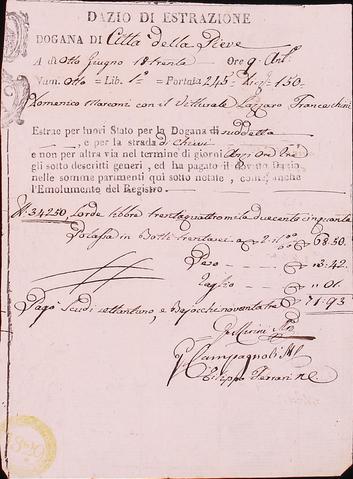 DAZIO DI ESTRAZIONE
DOGANA DI Città della Pieve
A di otto Giugno 18trenta Ore 9 Ant.
Num. otto = Lib. 1° = Portata 245
Domenico Marconi con il Vetturale Lazzaro Franceschini
Estrae per fuori Stato per la Dogana di suddetta
, e per la strada di Chiusi
e non per altra via nel termine di giorni
gli sotto descritti generi, ed ha pagato il dovuto Dazio
nelle somme parimenti qui sotto notate, com'anche
l'Emolumento del Registro.
34250 Lorde libbre trentaquattromila duecento cinquanta
Potassa in Botti trentasei a 2 68.50
Peso 3:42
Taglio 01
71.93
Pagò Scudi settantuno, e Bajocchi novantatre
G. Campagnoli
Filippo Ferrari